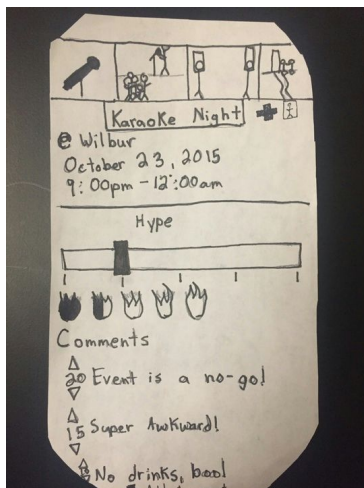 Karaoke Night
@ Wilbur
October 23, 2015
9:00pm - 12:00am
Hype
Comments
20 Event is a no-go!
15 Super Awkward!
No drinks, boo!